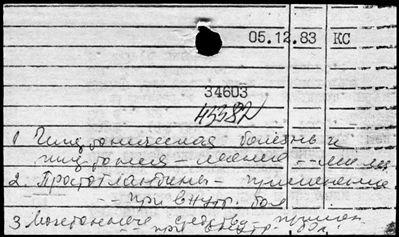 05.12.83 КС
34603
45382
1 Гипертоническая болезнь и
гипотония - лечение -
2. Простогландины - применение
- при внутр. бол
3 Мочегонные средства - примен
- при внутр. бол.